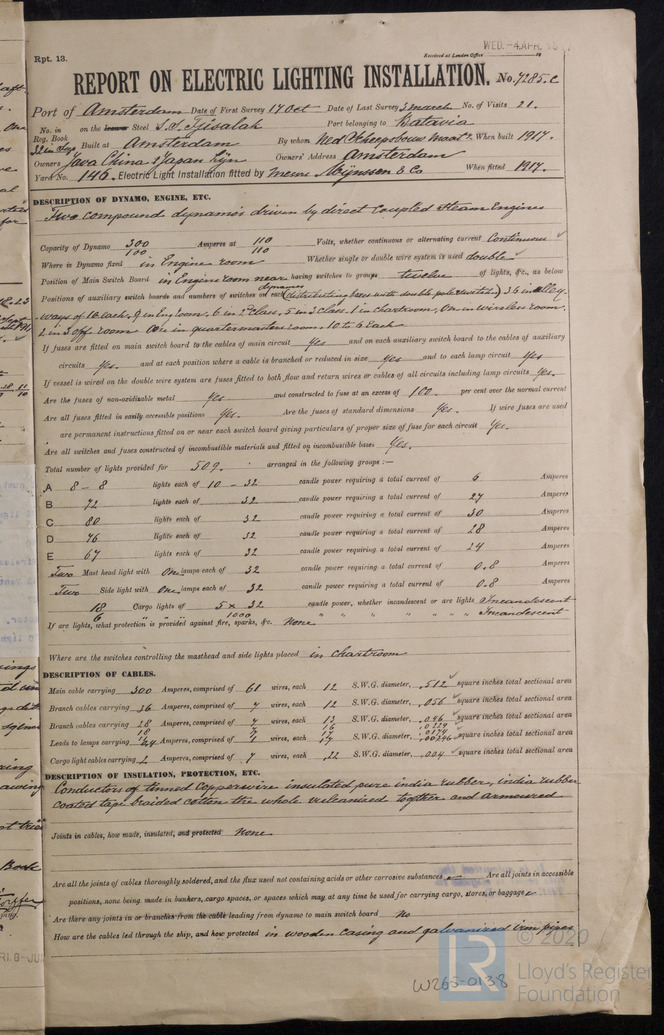 Rpt. 13.
Received at London Office
WED. -4 APR.
REPORT ON ELECTRIC LIGHTING INSTALLATION. No. 7285.c
Port of Amsterdam Date of First Survey 17 Oct Date of Last Survey 3 march No. of Visits 21.
No. in Reg. Book on the Iron Steel S.S. Tjisalak Port belonging to Batavia
Built at Amsterdam By whom Ned Scheepsbouw Maats. When built 1917.
Owners Java China & Japan Lijn Owners' Address Amsterdam
Yard No. 146. Electric Light Installation fitted by Messrs Mijnssen & Co When fitted 1917.
DESCRIPTION OF DYNAMO, ENGINE, ETC.
Two compound dynamos driven by direct coupled steam Engines
Capacity of Dynamo 300 Amperes at 110 Volts, whether continuous or alternating current Continuous
100 110
Where is Dynamo fixed in Engine room Whether single or double wire system is used double
Position of Main Switch Board in Engine room near dynamos having switches to groups twelve of lights, &c., as below
Positions of auxiliary switch boards and numbers of switches on each (distributing boxes with double pole switches) 36 in alley
ways of 16 each, 9 in Eng room, 6 in 2nd class, 5 in 3 class, 1 in chartroom, One in wireless room,
2 in 3 off. room One in quartermasters room, 10 to 6 each
If fuses are fitted on main switch board to the cables of main circuit Yes and on each auxiliary switch board to the cables of auxiliary
circuits Yes. and at each position where a cable is branched or reduced in size Yes and to each lamp circuit Yes
If vessel is wired on the double wire system are fuses fitted to both flow and return wires or cables of all circuits including lamp circuits Yes.
Are the fuses of non-oxidizable metal Yes and constructed to fuse at an excess of 100 per cent over the normal current
Are all fuses fitted in easily accessible positions Yes. Are the fuses of standard dimensions Yes. If wire fuses are used
are permanent instructions fitted on or near each switch board giving particulars of proper size of fuse for each circuit Yes.
Are all switches and fuses constructed of incombustible materials and fitted on incombustible bases Yes.
Total number of lights provided for 509. arranged in the following groups :—
A 8 - 8 lights each of 10 - 32 candle power requiring a total current of 6 Amperes
B 72 lights each of 32 candle power requiring a total current of 27 Amperes
C 80 lights each of 32 candle power requiring a total current of 30 Amperes
D 76 lights each of 32 candle power requiring a total current of 28 Amperes
E 67 lights each of 32 candle power requiring a total current of 24 Amperes
Two Mast head light with One lamps each of 32 candle power requiring a total current of 0.8 Amperes
Two Side light with One lamps each of 32 candle power requiring a total current of 0.8 Amperes
18 Cargo lights of 5 x 32 candle power, whether incandescent or arc lights Incandescent
6 " " 1000 " " " " " " Incandescent
If arc lights, what protection is provided against fire, sparks, &c. None
Where are the switches controlling the masthead and side lights placed in Chartroom
DESCRIPTION OF CABLES.
Main cable carrying 300 Amperes, comprised of 61 wires, each 12 S.W.G. diameter, .512 square inches total sectional area
Branch cables carrying 36 Amperes, comprised of 7 wires, each 12 S.W.G. diameter, .056 square inches total sectional area
Branch cables carrying 28 Amperes, comprised of 7 wires, each 13 S.W.G. diameter, .046 square inches total sectional area
Leads to lamps carrying Amperes, comprised of wires, each 17 S.W.G. diameter, .00246 square inches total sectional area
Cargo light cables carrying 2 Amperes, comprised of 7 wires, each .22 S.W.G. diameter, .004 square inches total sectional area
DESCRIPTION OF INSULATION, PROTECTION, ETC.
Conductors of tinned Copperwire insulated pure india rubber, india rubber
coated tape braided cotton the whole vulcanized together and armoured
Joints in cables, how made, insulated, and protected None
Are all the joints of cables thoroughly soldered, and the flux used not containing acids or other corrosive substances Are all joints in accessible
positions, none being made in bunkers, cargo spaces, or spaces which may at any time be used for carrying cargo, stores, or baggage
Are there any joints in or branches from the cable leading from dynamo to main switch board No
How are the cables led through the ship, and how protected in wooden casing and galvanized iron pipes
W265-0138
© 2020
LR
Lloyd's Register
Foundation